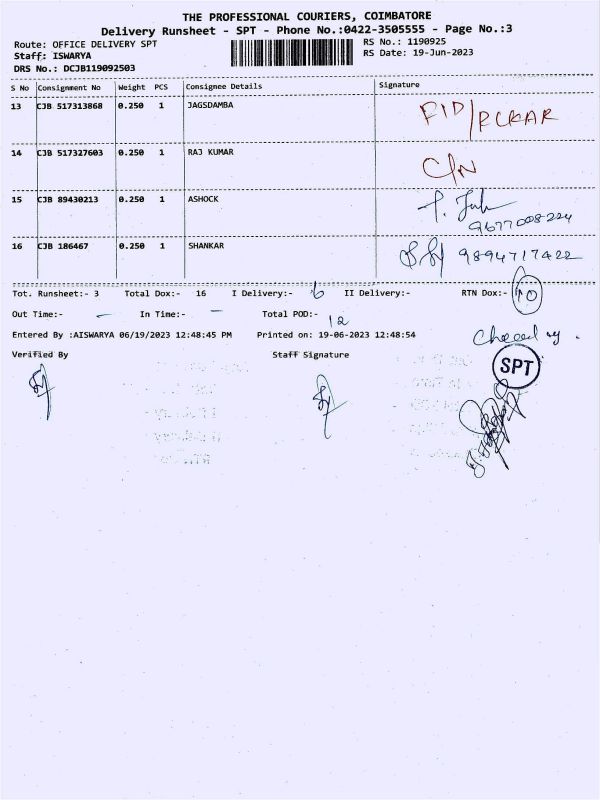 THE PROFESSIONAL COURIERS, COIMBATORE
Delivery Runsheet - SPT - Phone No.:0422-3505555 - Page No.:3
Route: OFFICE DELIVERY SPT RS No.: 1190925
Staff: ISWARYA RS Date: 19-Jun-2023
DRS No.: DCJB119092503
S No Consignment No Weight PCS Consignee Details Signature
13 CJB 517313868 0.250 1 JAGSDAMBA
14 CJB 517327603 0.250 1 RAJ KUMAR C/N
15 CJB 89430213 0.250 1 ASHOCK
9677008224
16 CJB 186467 0.250 1 SHANKAR 9894717422
Tot. Runsheet:- 3 Total Dox:- 16 I Delivery:- 6 II Delivery:- RTN Dox:- 10
Out Time:- – In Time:- – Total POD:- 12
Entered By :AISWARYA 06/19/2023 12:48:45 PM Printed on: 19-06-2023 12:48:54
Verified By Staff Signature
SPT